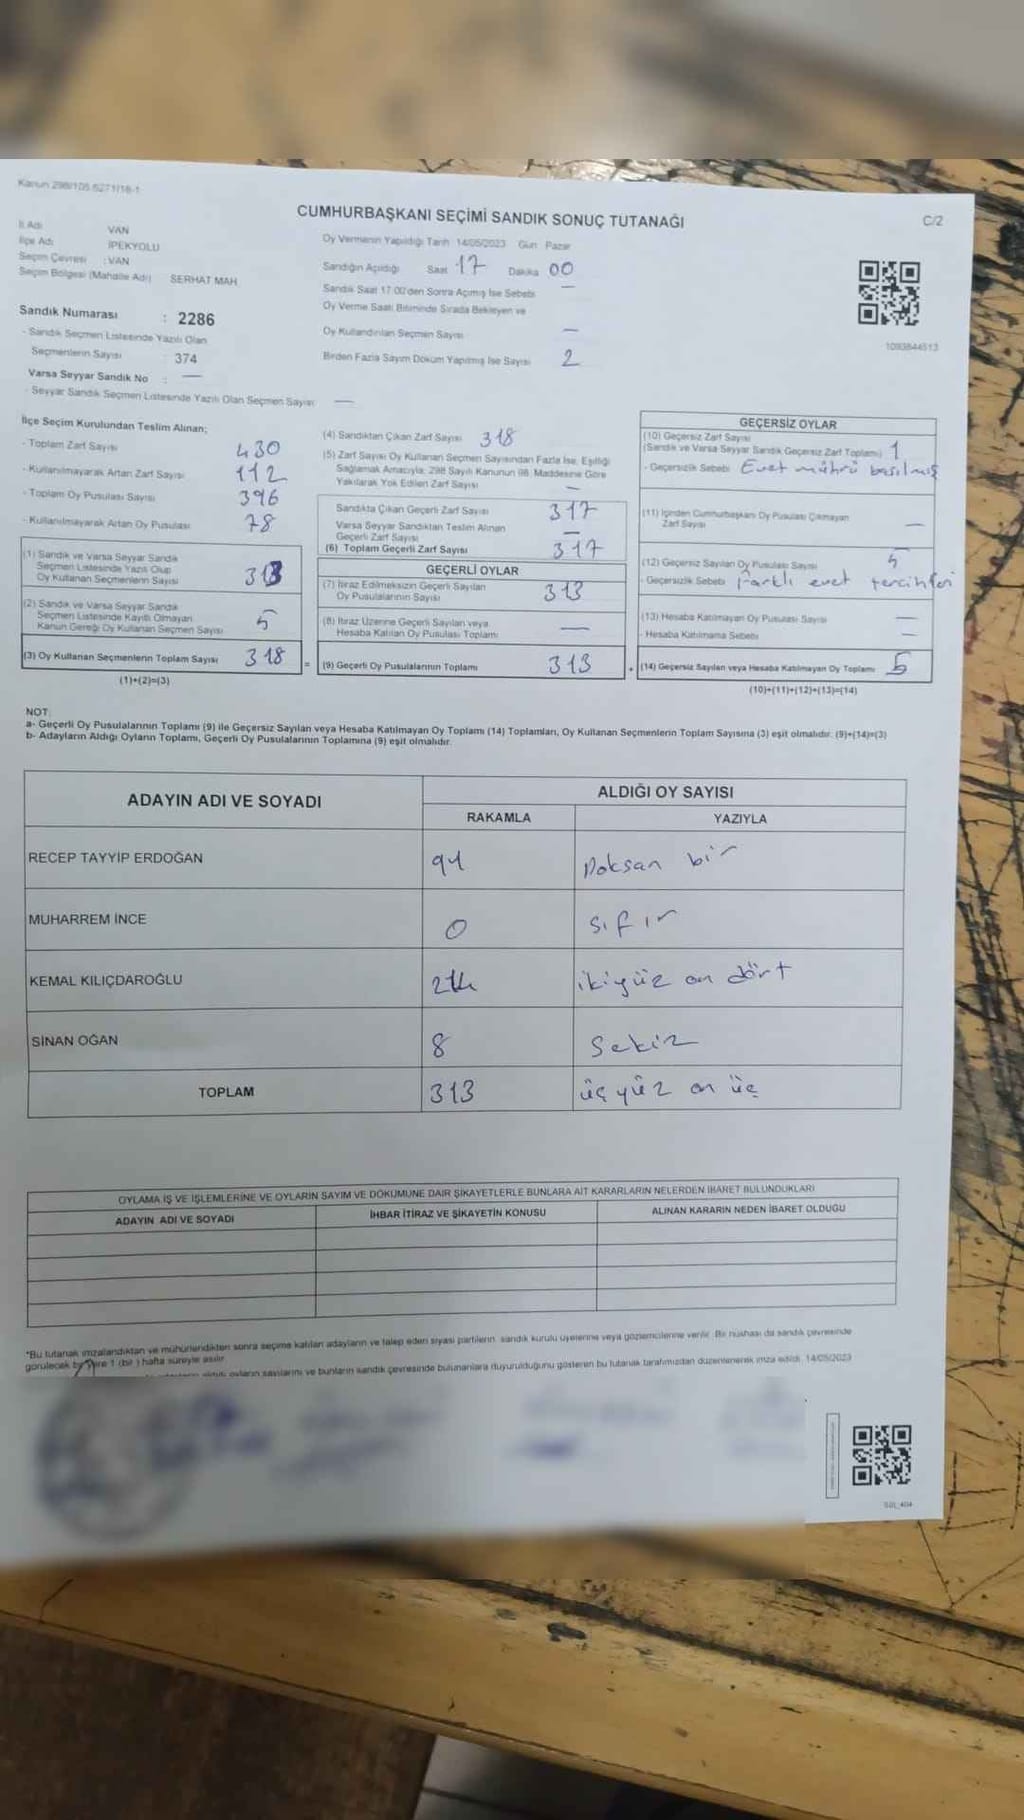 Kanun 298/105 6271/18-1
CUMHURBAŞKANI SEÇİMİ SANDIK SONUÇ TUTANAĞI
C/2
İl Adı : VAN
İlçe Adı : İPEKYOLU
Seçim Çevresi : VAN
Seçim Bölgesi (Mahalle Adı) SERHAT MAH.
Sandık Numarası : 2286
- Sandık Seçmen Listesinde Yazılı Olan
Seçmenlerin Sayısı 374
Varsa Seyyar Sandık No : —
- Seyyar Sandık Seçmen Listesinde Yazılı Olan Seçmen Sayısı —
Oy Vermenin Yapıldığı Tarih 14/05/2023 Gün Pazar
Sandığın Açıldığı Saat 17 Dakika 00
Sandık Saat 17:00'den Sonra Açılmış İse Sebebi —
Oy Verme Saati Bitiminde Sırada Bekleyen ve
Oy Kullandırılan Seçmen Sayısı —
Birden Fazla Sayım Döküm Yapılmış İse Sayısı 2
1093844513
İlçe Seçim Kurulundan Teslim Alınan;
- Toplam Zarf Sayısı 430
- Kullanılmayarak Artan Zarf Sayısı 112
- Toplam Oy Pusulası Sayısı 396
- Kullanılmayarak Artan Oy Pusulası 78
(1) Sandık ve Varsa Seyyar Sandık
Seçmen Listesinde Yazılı Olup
Oy Kullanan Seçmenlerin Sayısı 313
(2) Sandık ve Varsa Seyyar Sandık
Seçmen Listesinde Kayıtlı Olmayan
Kanun Gereği Oy Kullanan Seçmen Sayısı 5
(3) Oy Kullanan Seçmenlerin Toplam Sayısı 318 =
(1)+(2)=(3)
(4) Sandıktan Çıkan Zarf Sayısı 318
(5) Zarf Sayısı Oy Kullanan Seçmen Sayısından Fazla İse, Eşitliği
Sağlamak Amacıyla, 298 Sayılı Kanunun 98. Maddesine Göre
Yakılarak Yok Edilen Zarf Sayısı —
Sandıkta Çıkan Geçerli Zarf Sayısı 317
Varsa Seyyar Sandıktan Teslim Alınan
Geçerli Zarf Sayısı —
(6) Toplam Geçerli Zarf Sayısı 317
GEÇERLİ OYLAR
(7) İtiraz Edilmeksizin Geçerli Sayılan
Oy Pusulalarının Sayısı 313
(8) İtiraz Üzerine Geçerli Sayılan veya
Hesaba Katılan Oy Pusulası Toplamı —
(9) Geçerli Oy Pusulalarının Toplamı 313 +
GEÇERSİZ OYLAR
(10) Geçersiz Zarf Sayısı
(Sandık ve Varsa Seyyar Sandık Geçersiz Zarf Toplamı) 1
- Geçersizlik Sebebi Evet mührü basılmış
(11) İçinden Cumhurbaşkanı Oy Pusulası Çıkmayan
Zarf Sayısı —
(12) Geçersiz Sayılan Oy Pusulası Sayısı 5
- Geçersizlik Sebebi Farklı evet tercihleri
(13) Hesaba Katılmayan Oy Pusulası Sayısı —
- Hesaba Katılmama Sebebi —
(14) Geçersiz Sayılan veya Hesaba Katılmayan Oy Toplamı 5
(10)+(11)+(12)+(13)=(14)
NOT:
a- Geçerli Oy Pusulalarının Toplamı (9) ile Geçersiz Sayılan veya Hesaba Katılmayan Oy Toplamı (14) Toplamları, Oy Kullanan Seçmenlerin Toplam Sayısına (3) eşit olmalıdır. (9)+(14)=(3)
b- Adayların Aldığı Oyların Toplamı, Geçerli Oy Pusulalarının Toplamına (9) eşit olmalıdır.
ADAYIN ADI VE SOYADI
ALDIĞI OY SAYISI
RAKAMLA YAZIYLA
RECEP TAYYİP ERDOĞAN 91 Doksan bir
MUHARREM İNCE 0 sıfır
KEMAL KILIÇDAROĞLU 214 ikiyüz on dört
SİNAN OĞAN 8 Sekiz
TOPLAM 313 üçyüz on üç
OYLAMA İŞ VE İŞLEMLERİNE VE OYLARIN SAYIM VE DÖKÜMÜNE DAİR ŞİKAYETLERLE BUNLARA AİT KARARLARIN NELERDEN İBARET BULUNDUKLARI
ADAYIN ADI VE SOYADI İHBAR İTİRAZ VE ŞİKAYETİN KONUSU ALINAN KARARIN NEDEN İBARET OLDUĞU
*Bu tutanak imzalandıktan ve mühürlendikten sonra seçime katılan adayların ve talep eden siyasi partilerin, sandık kurulu üyelerine veya gözlemcilerine verilir. Bir nüshası da sandık çevresinde
görülecek bir yere 1 (bir) hafta süreyle asılır.
oyların sayılarını ve bunların sandık çevresinde bulunanlara duyurulduğunu gösteren bu tutanak tarafımızdan düzenlenerek imza edildi. 14/05/2023